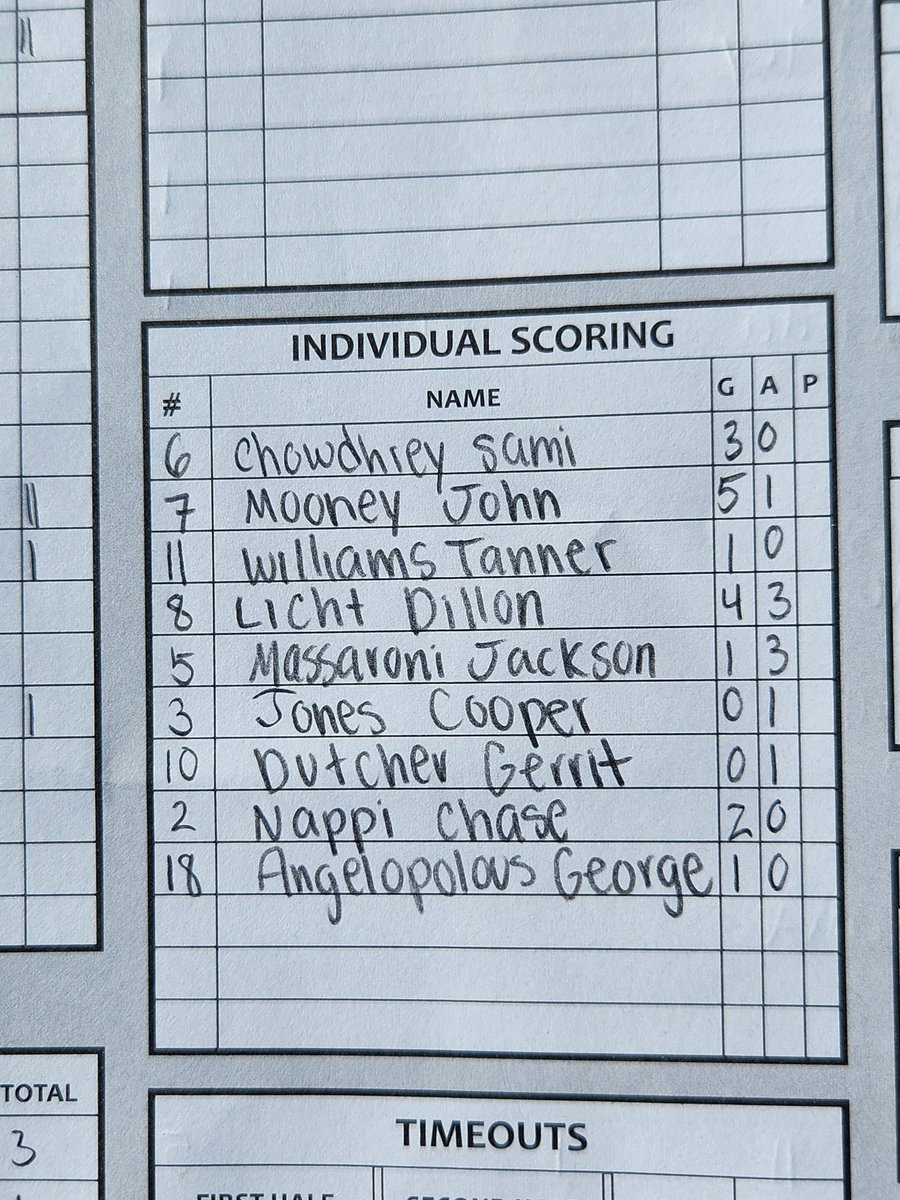 INDIVIDUAL SCORING
# NAME G A P
6 Chowdhrey Sami 3 0
7 Mooney John 5 1
11 Williams Tanner 1 0
8 Licht Dillon 4 3
5 Massaroni Jackson 1 3
3 Jones Cooper 0 1
10 Dutcher Gerrit 0 1
2 Nappi Chase 2 0
18 Angelopolous George 1 0
TOTAL
3
TIMEOUTS
FIRST HALF